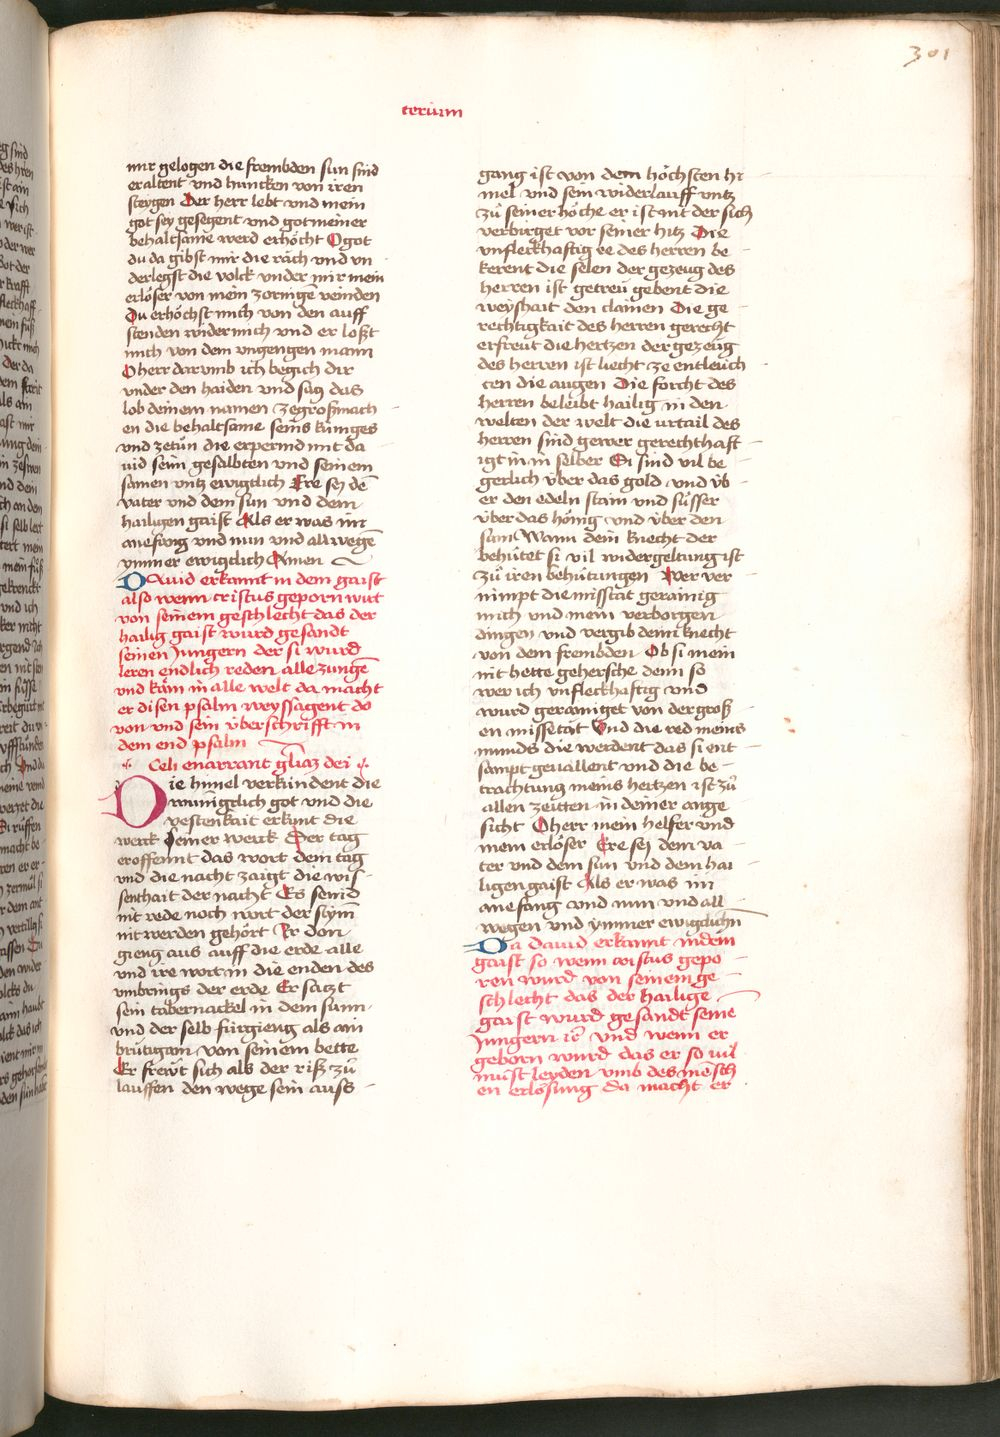 301
terium
mir gelogen die frembden sun sind
eraltent vnd huncken von iren
steygen Der herr lebt vnd mein
got sey gesegent vnd got meiner
behaltsame werd erhöcht O got
du da gibst mir die rach vnd vn
derlegst die volck vnder mir mein
erlöser von mein zornigē veinden
Du erhöchst mich von den auff
stenden wider mich vnd er loßt
mich von dem vngengen mann
O herr darumb ich begich dir
vnder den haiden vnd sag das
lob deinem namen ze großmach
en die behaltsame seins küniges
vnd zetün die erpermd mit da
uid seim gesalbten vnd seinem
samen vntz ewigclich Ere sej dē
vater vnd dem sun vnd dem
hailigen gaist Als er was im
anefang vnd nun vnd allwegē
ymmer ewigclich Amen
Dauid erkannt in dem gaist
also wenn cristus geporn wirt
von seinem geschlecht das der
hailig gaist wurd gesandt
seinen Jungern der si wurd
leren endlich reden alle zungē
vnd käm in alle welt da macht
er disen psalm weyssagent do
von vnd sein überschrifft in
dem end psalm
Celi enarrant gliaz dei
Die himel verkündent die
wunigclich got vnd die
vestenkait erkunt die
werck seiner werck Der tag
eroffennt das wort dem tag
vnd die nacht zaigt die wis
senthait der nacht Es seind
nit rede noch wort der stym
nit werden gehört Ir don
gieng aus auff die erde alle
vnd ire wort in die enden des
vmbrings der erde Er satzt
sein tabernackel in dem sunn
vnd der selb fürgieng als ain
brütigam von seinem bette
Er frewt sich als der riß zū
lauffen den wege sein auss
gang ist von dem höchsten hi
mel vnd sein widerlauff vntz
zū seiner höche er ist nit der sich
verbirget vor seiner hitz Die
vnfleckhaftig ee des herren be
kerent die selen der gezeug des
herren ist getreü gebent die
weyshait den clainen Die ge
rechtigkait des herren gerecht
erfreut die hertzen der gezeug
des herren ist liecht ze entleuch
ten die augen Die forcht des
herren beleibt hailig in den
welten der welt die urtail des
herren sind gewer gerechthaft
igt in in selber Si sind vil be
gerlich über das gold vnd üb
er den edeln stain vnd süsser
über das hönig vnd über den
sam Wann dein knecht der
behütet si vil widergeltung ist
zū iren behütungen Wer ver
nimpt die misstat gerainig
mich vnd mein verborgen
dingen vnd vergib deim knecht
von dem frembden Ob si mein
nit hette gehersche denn so
wer ich vnfleckhaftig vnd
wurd gerainiget von der groß
en missetat Vnd die red meins
munds die werdent das si ent
sampt geuallent vnd die be
trachtung meins hertzen ist zū
allen zeitten in deiner ange
sicht O herr mein helfer vnd
mein erlöser Ere sej dem va
ter vnd dem sun vnd dem hai
ligen gaist Als er was im
anefang vnd nun vnd all
wegen vnd ymmer ewigclichn
Da dauid erkannt in dem
gaist so wenn cristus gepo
ren wurd von seinem ge
schlecht das der hailige
gaist wurd gesandt seine
Jungern vnd wenn er
geborn wurd das er so uil
must leyden vmb des mēsch
en erlösung da macht er